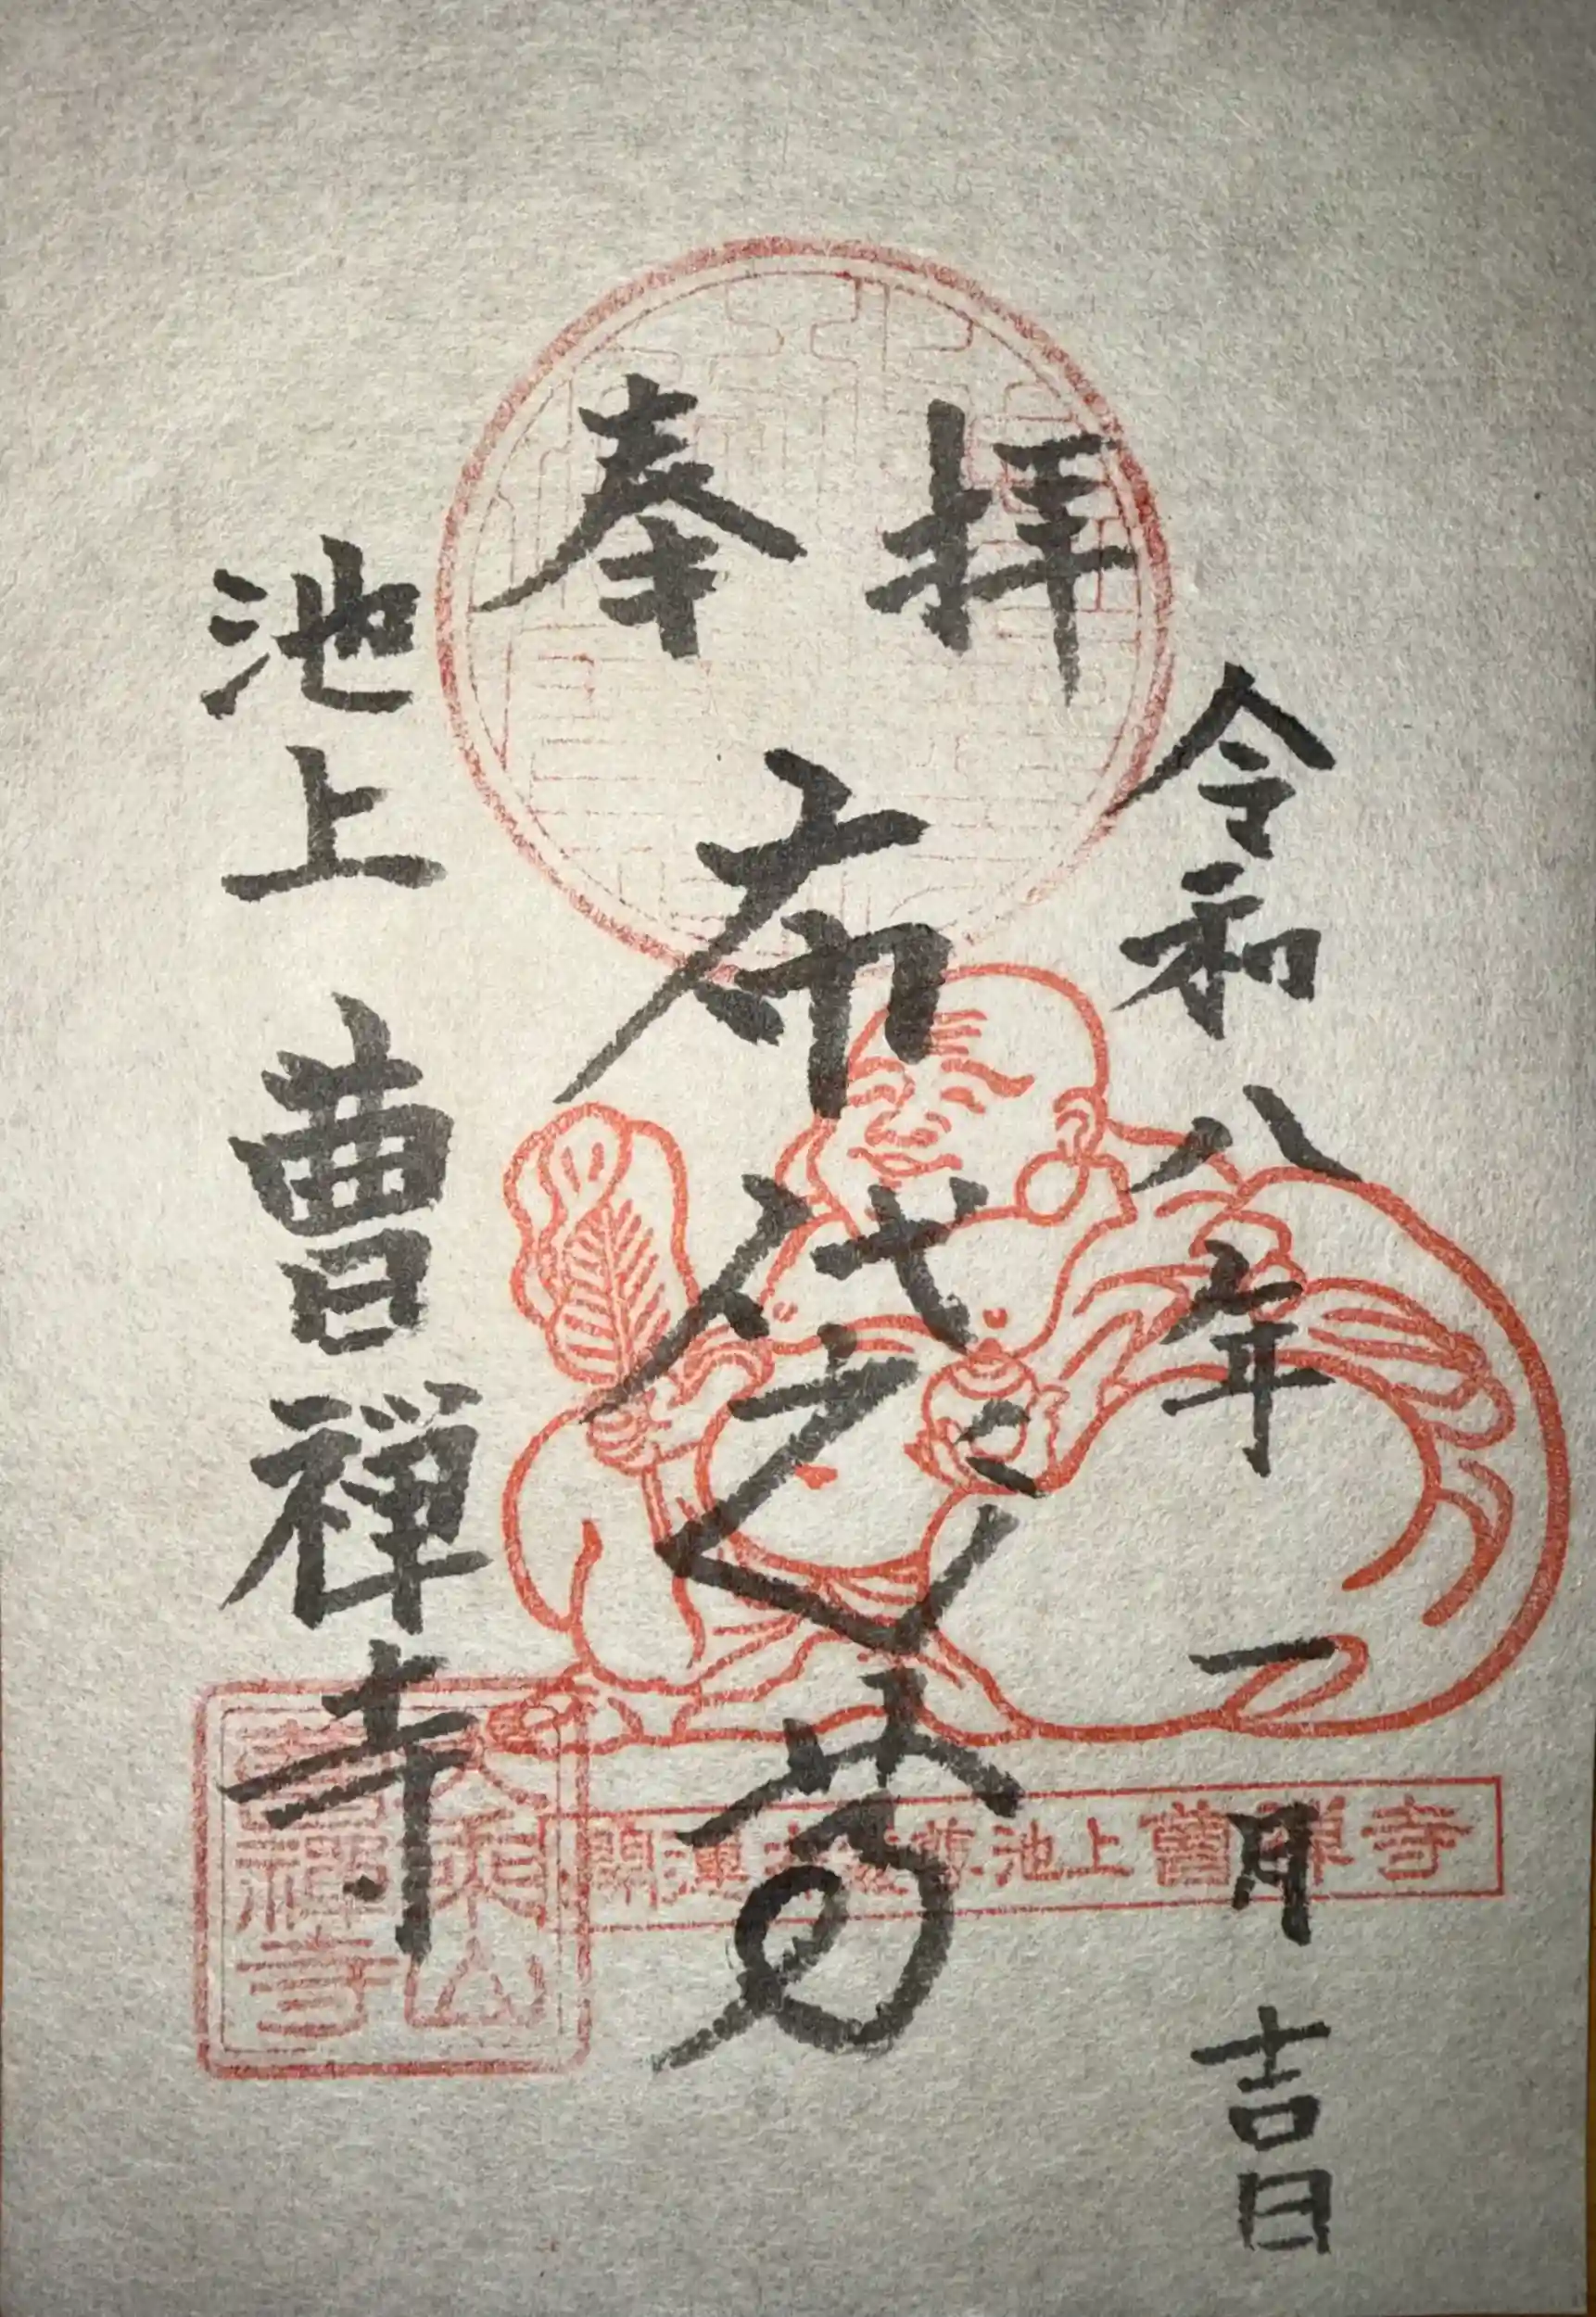 奉拝
令和八年一月吉日
布袋尊
池上 曹禅寺
開運布袋尊 池上曹禅寺
曹禅寺